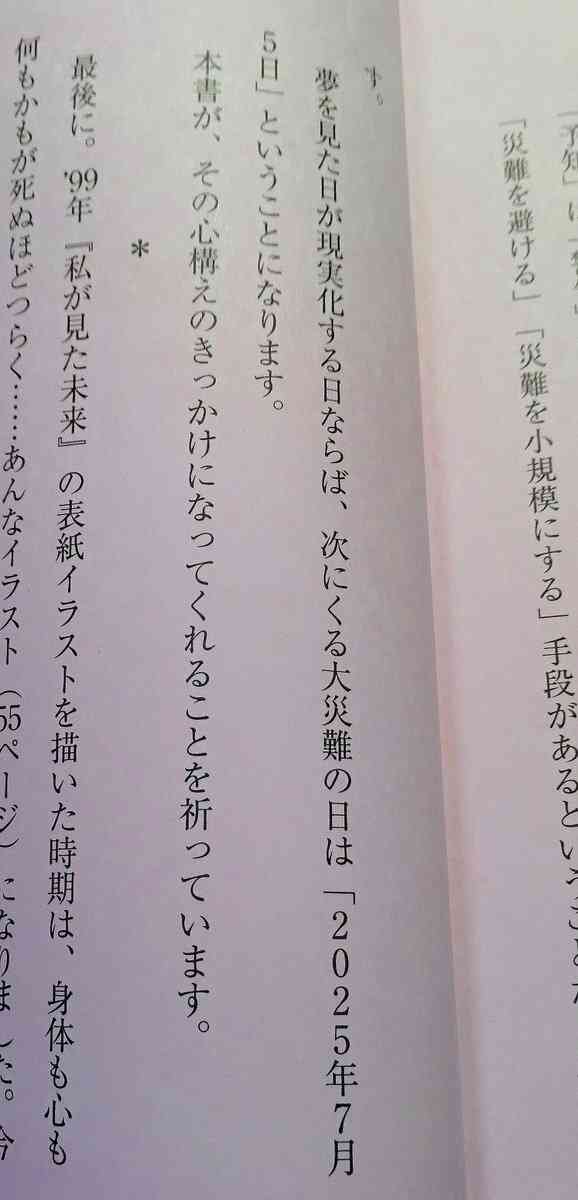 「災難を避ける」「災難を小規模にする」手段があるという
す。
夢を見た日が現実化する日ならば、次にくる大災難の日は「2025年7月
5日」ということになります。
本書が、その心構えのきっかけになってくれることを祈っています。
*
最後に。'99年『私が見た未来』の表紙イラストを描いた時期は、身体も心も
何もかもが死ぬほどつらく……あんなイラスト（55ページ）になりました。今